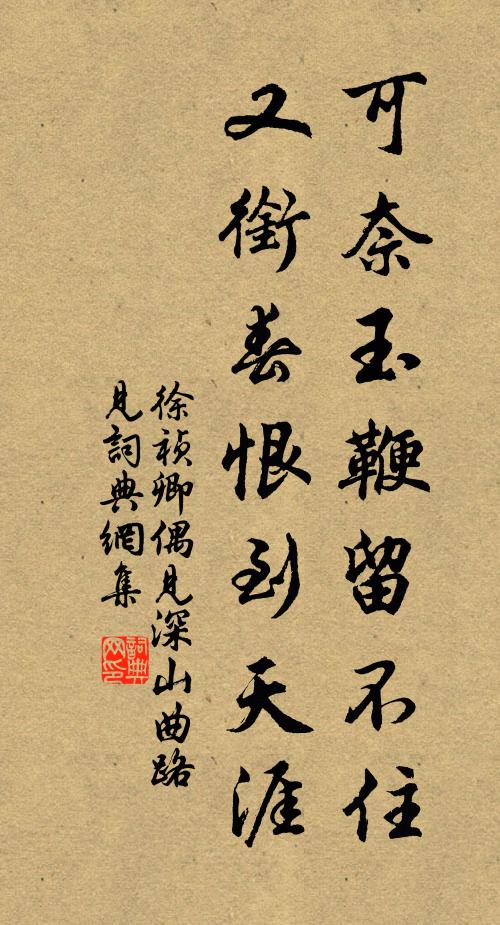 可奈玉鞭留不住
又銜春恨到天涯
徐禎卿偶見深山曲路
見詞典網集
詞典
网印